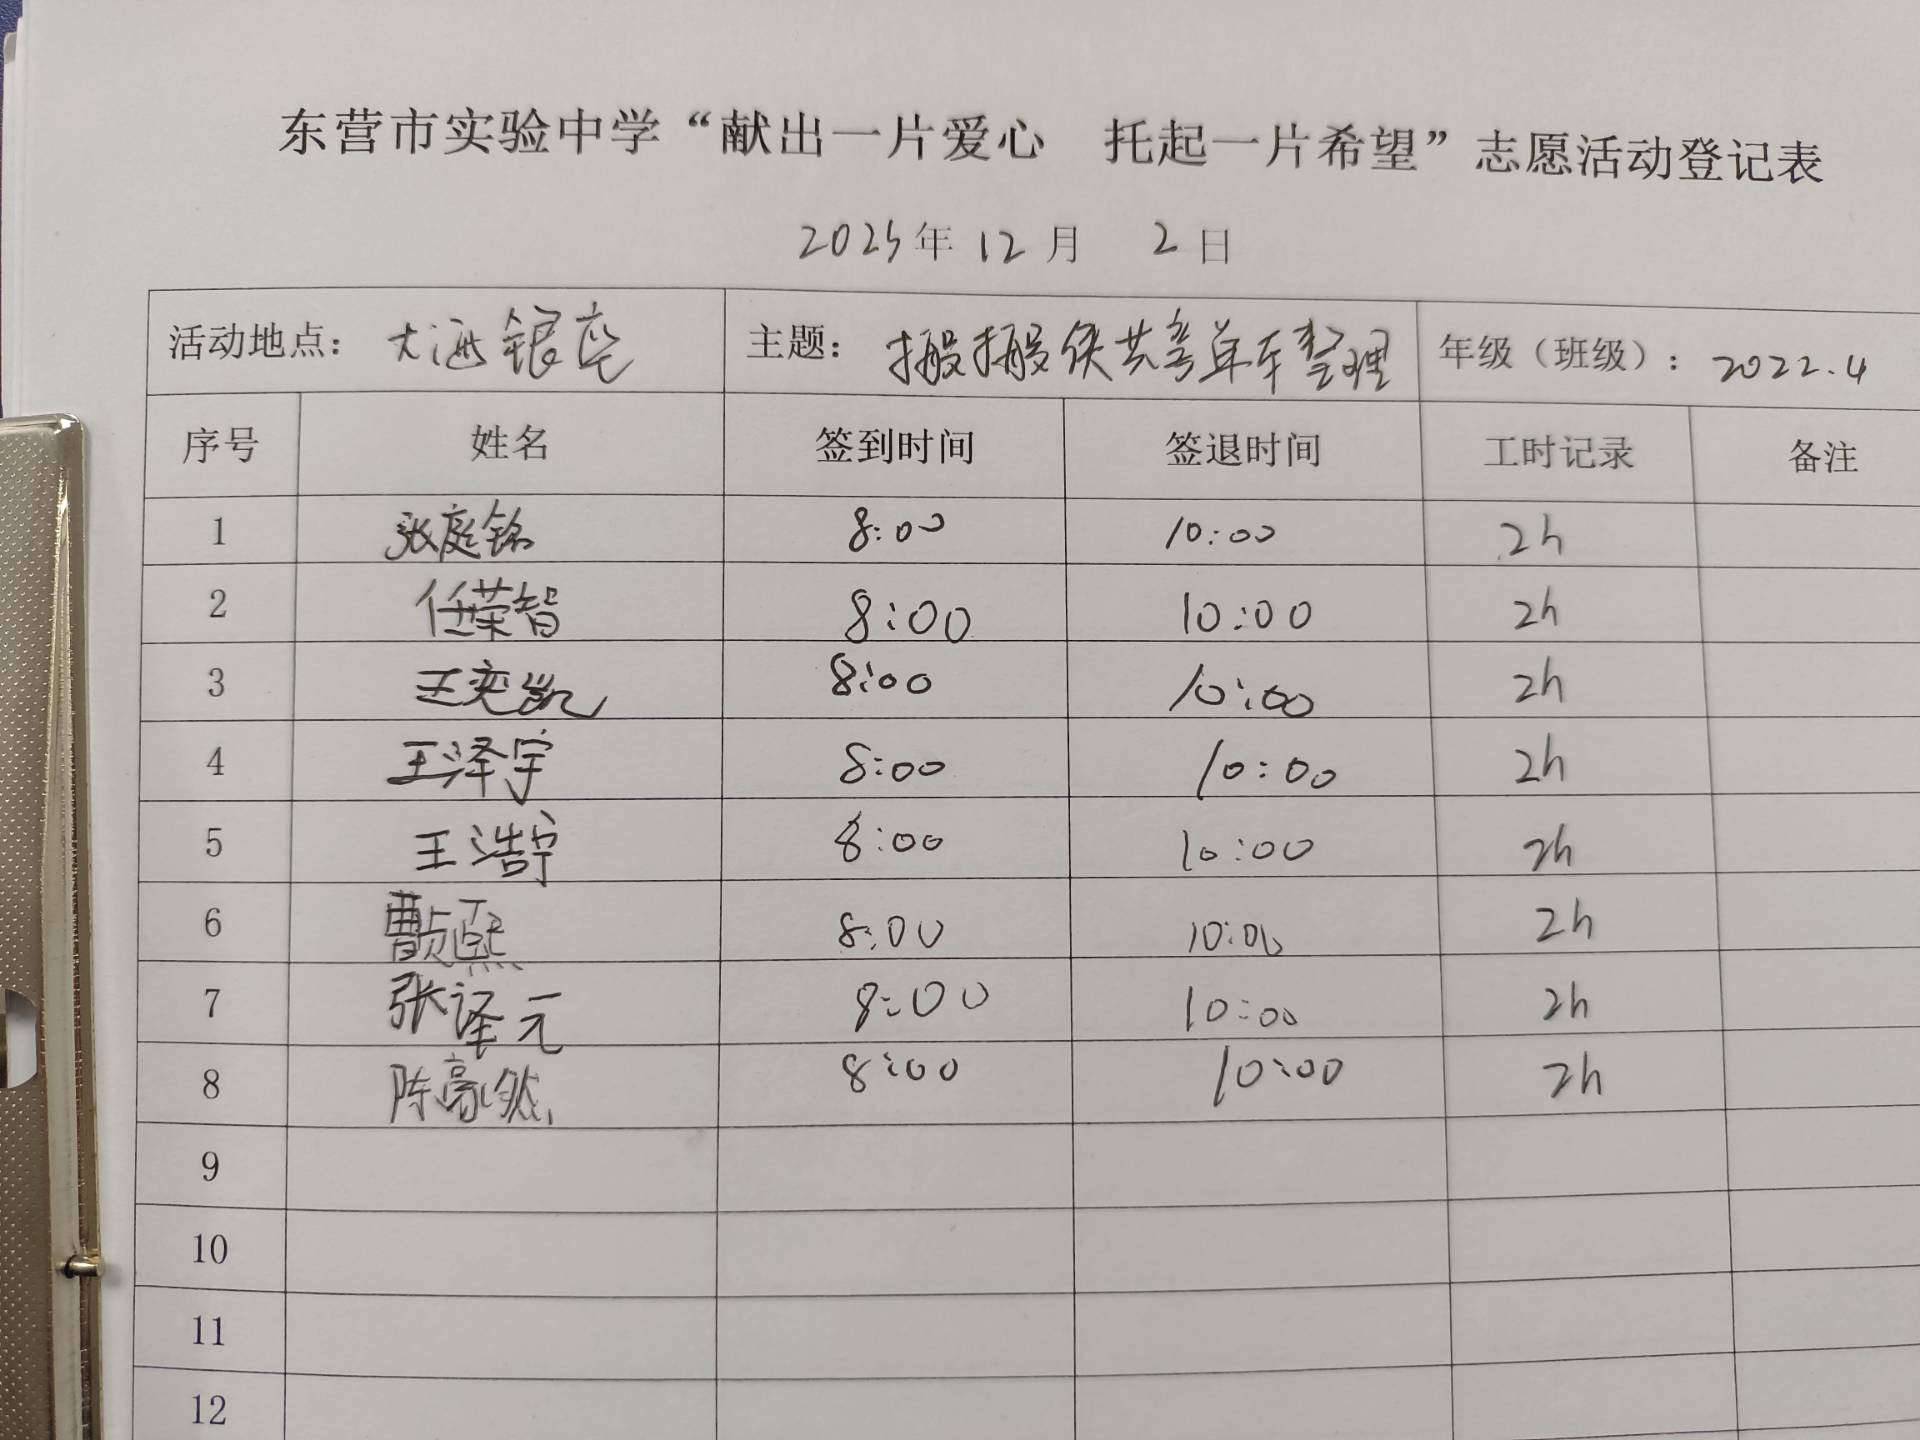 东营市实验中学“献出一片爱心 托起一片希望”志愿活动登记表
2025年 12月 2日
活动地点： 大海银座 主题： 搬搬侠共享单车整理 年级（班级）： 2022.4
序号 姓名 签到时间 签退时间 工时记录 备注
1 张庭铭 8:00 10:00 2h
2 任荣智 8:00 10:00 2h
3 王奕凯 8:00 10:00 2h
4 王泽宇 8:00 10:00 2h
5 王浩宇 8:00 10:00 2h
6 曹贞熙 8:00 10:00 2h
7 张译元 8:00 10:00 2h
8 陈豪然 8:00 10:00 2h
9
10
11
12